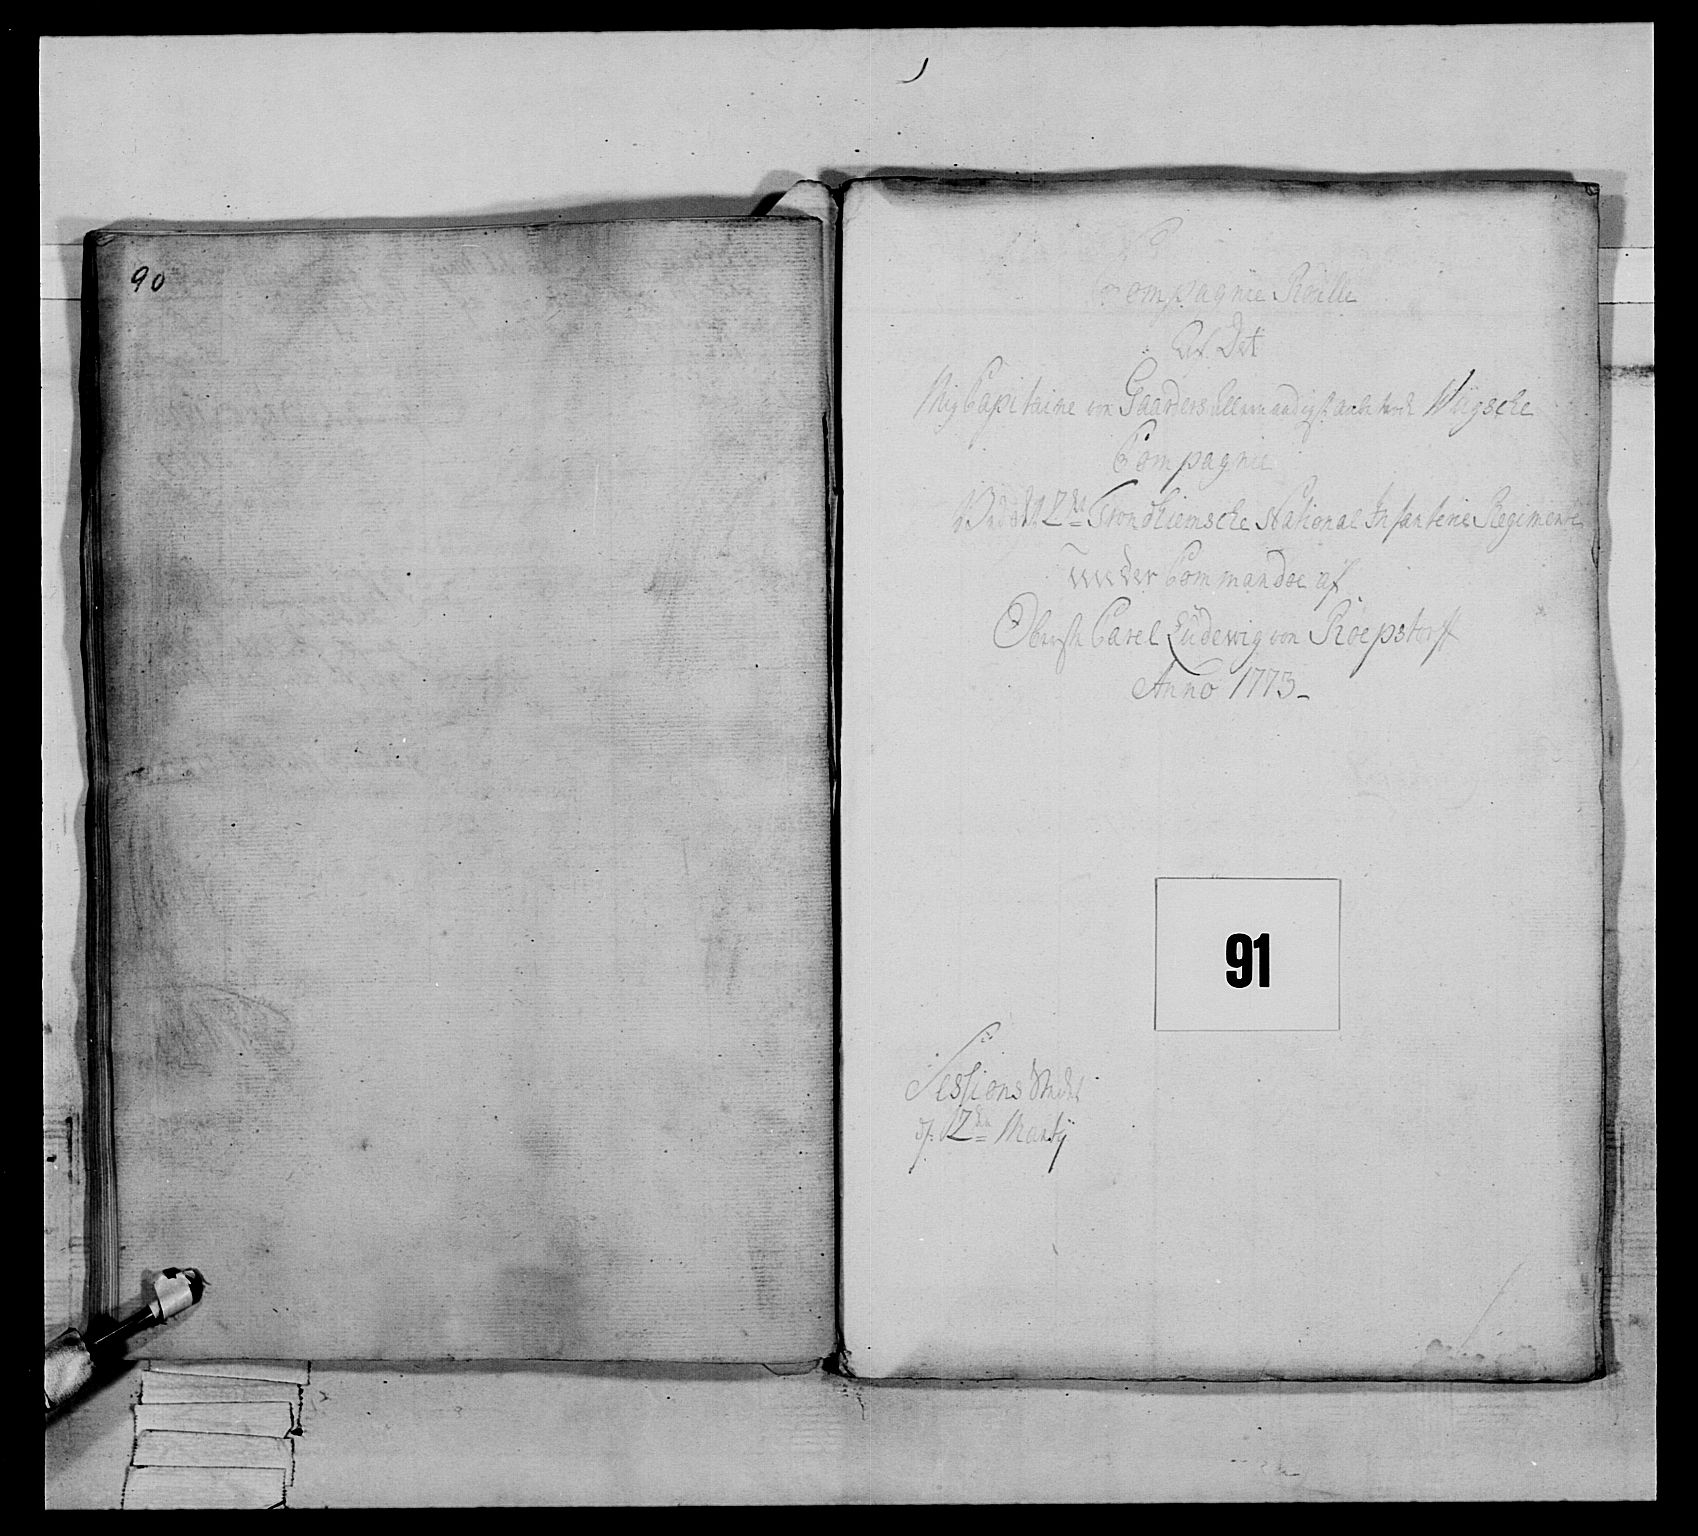 90
Compagnie Rolle
Over Det
Mig Capitaine von Gaarders allernaadigst anbetroede Wiigsche
Compagnie
Ved det 2det Trondhiemsche National Infanterie Regimente
under Commandoe af
Oberste Carel Lüdewig von Röepstorff
Anno 1773_
91
Sessions
d: 12ten Martij